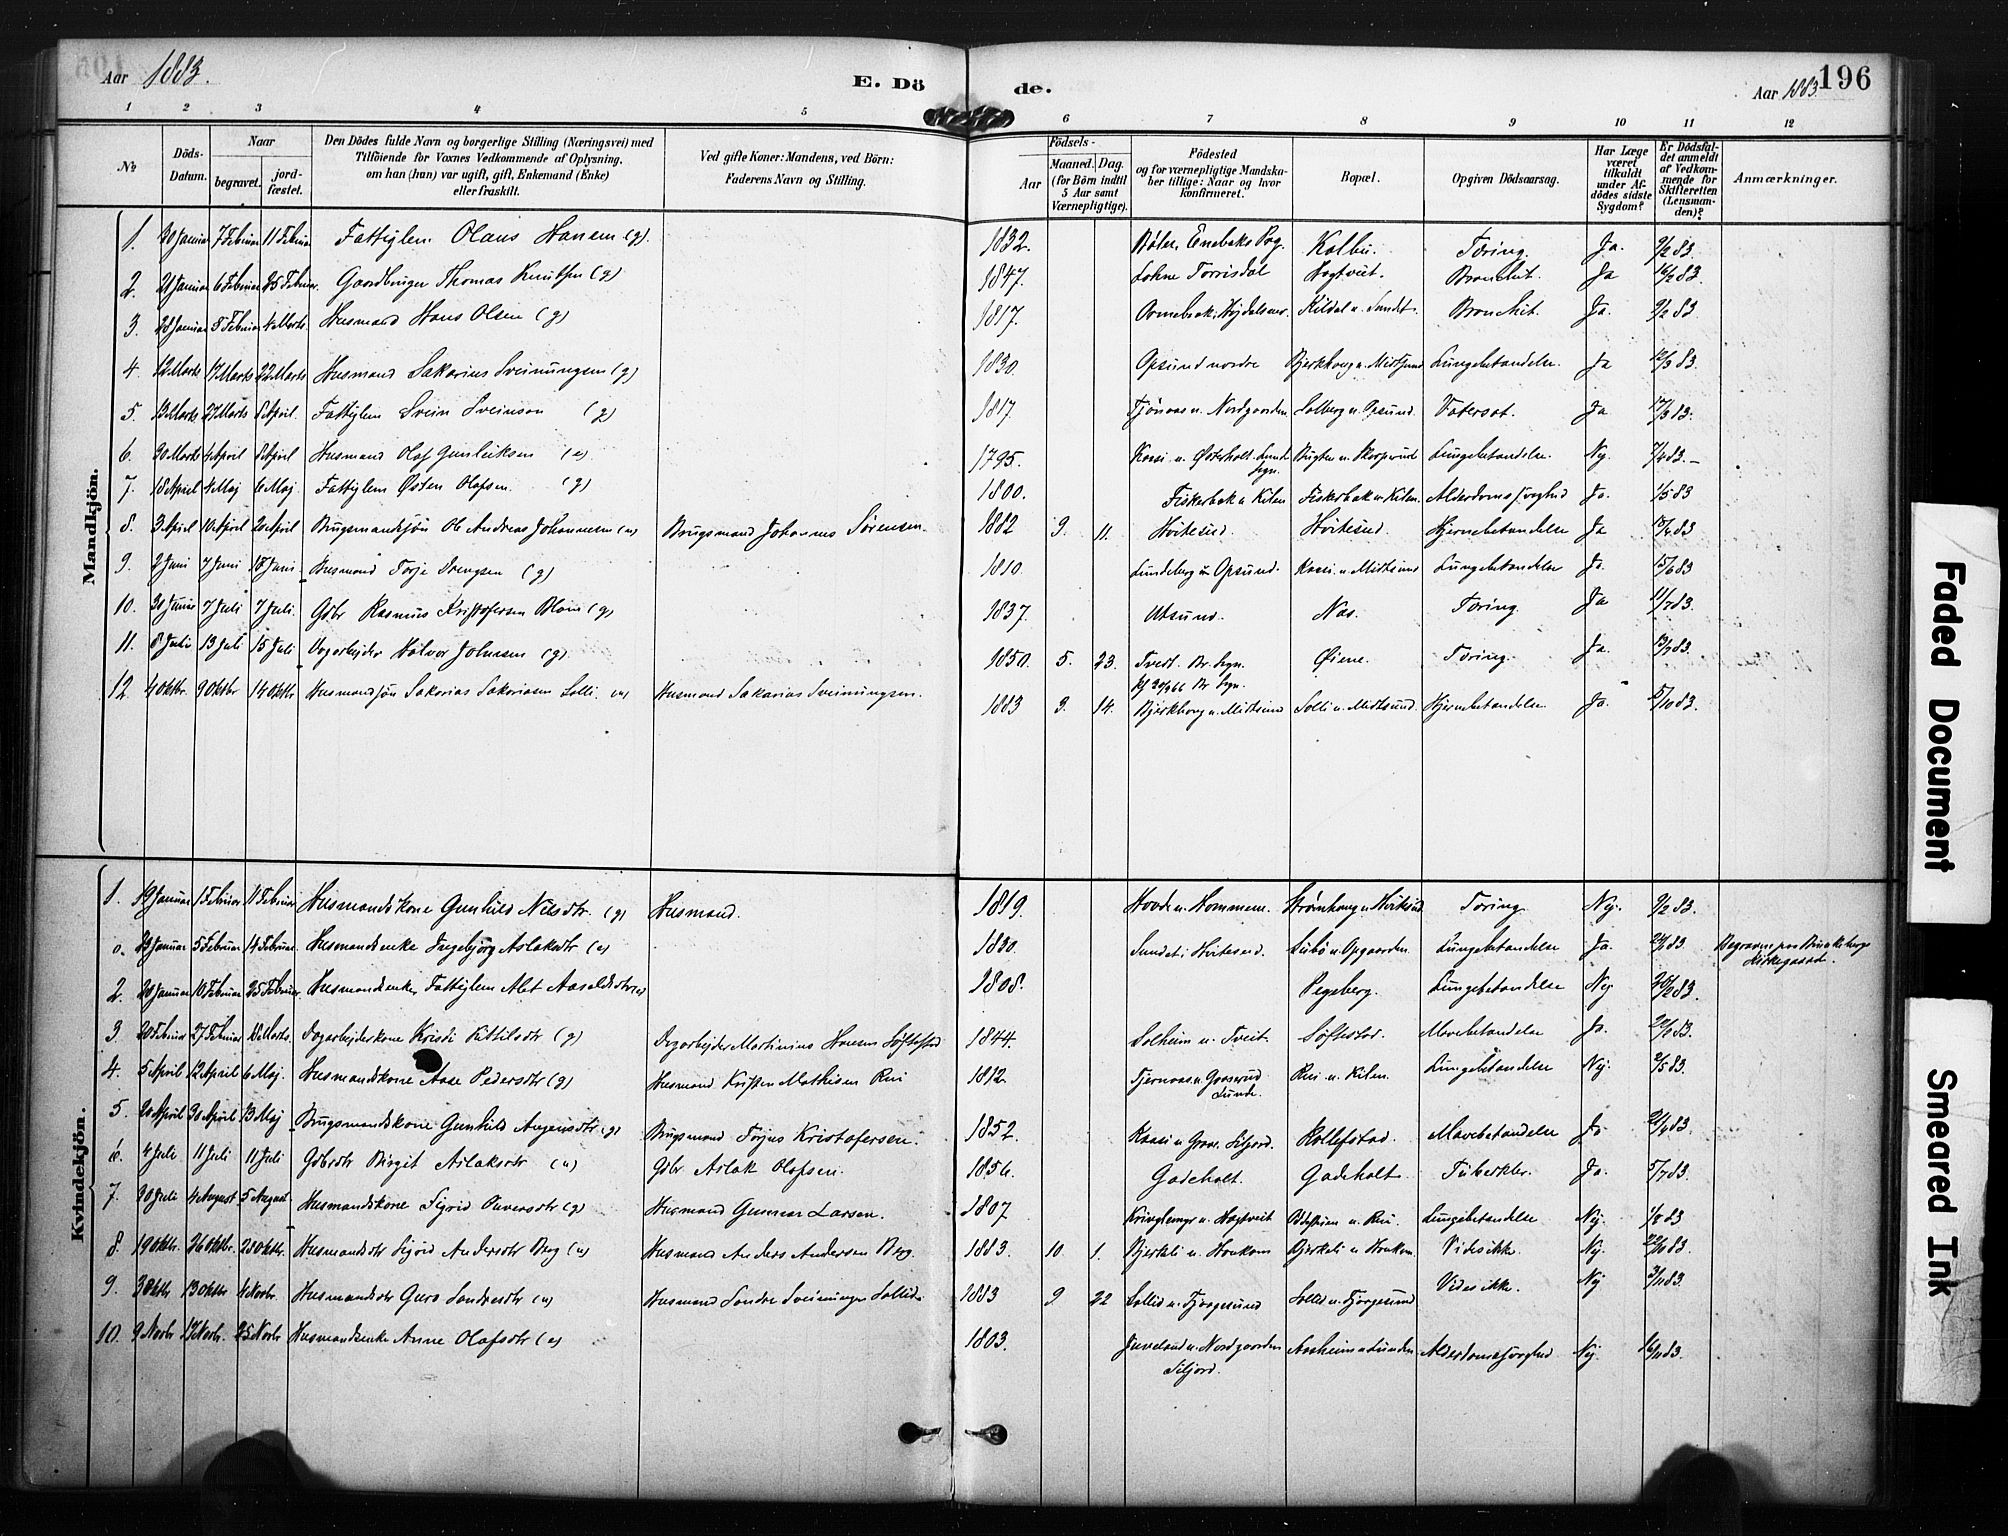 Aar 1883.
E. Dö de.
Aar 1883.
196
1 2 3 4 5 6 7 8 9 10 11 12
No
Döds-Datum.
Naar
begravet.
jord-fæstet.
Den Dödes fulde Navn og borgerlige Stilling (Næringsvei) med
Tilföiende for Voxnes Vedkommende af Oplysning.
om han (hun) var ugift, gift, Enkemand (Enke)
eller fraskilt.
Ved gifte Koner: Mandens, ved Börn:
Faderens Navn og Stilling.
Födsels-
Aar
Maaned. Dag.
(for Börn indtil
5 Aar samt
Værnepligtige).
Födested
og for værnepligtige Mandska-
ber tillige: Naar og hvor
konfirmeret.
Bopæl.
Opgiven Dödsaarsag.
Har Læge
været
tilkaldt
under Af-
dödes sidste
Sygdom?
Er Dödsfal-
det anmeldt
af Vedkom-
mende for
Skifteretten
(Lensman-
den)?
Anmærkninger.
Mandkjön.
1. 30 Januar 7 Februar 11 Februar Fattiglem Olaus Hansen (g). 1832. Böler, Enebaks Pog. Kolbu. Tæring. Ja. 9/2 83.
2. 21 Januar 6 Februar 25 Februar. Gaardbruger Thomas Knutsen (g) 1847. Lohne Torrisdal Hogtveit. Bronchit. Ja 16/2 83.
3. 28 Januar 8 Februar 4 Marts. Husmand Hans Olsen (g) 1817. Kildal u. Sundet. Bronchit. Ja. 9/2 83
4. 12 Marts 17 Marts 22 Marts Husmand Sakarias Sveinungsen (g) 1830. Opsund nordre Bjerkhaug u. Midtsund Lungebetændelse. Ja 12/3 83.
5. 13 Marts 27 Marts 8 April. Fattiglem Svein Sveinson (g) 1817. Tjönaas u. Nordgaarden Solberg u. Opsund. Vatersot. Ja 17/3 83.
6. 30 Marts 4 April 8 April Husmand Olaf Gunleiksen (e) 1795. Kaasi u. Österholt. Lunde Sogn. Lungebetændelse. Nej. 7/4 83.
7. 18 April 4 Maj 6 Maj. Fattiglem Östen Olafsen. (g) 1800. Fiskerbæk u Kilen Fiskerbæk u Kilen. Alderdomssvaghed Ja. 1/5 83
8. 3 April 10 April 20 April Brugsmandssön Ole Andreas Johannesen (u) Brugsmand Johannes Sörensen. 1882 9. 11. Hvitesund. Hvitesund. Hjernebetændelse Ja 13/4 83
9. 2 Juni 7 Juni 18 Juni Husmand Torje Drengsen (g) 1810. Lundeberg u Opsund. Kaasi u. Midtsund Lungebetændelse Ja. 15/6 83
10. 30 Juni 7 Juli 7 Juli. Gdbr Rasmus Kristofersen Blom (g) 1837. Utsund. Næs. Tæring Ja 11/7 83.
11. 8 Juli 13 Juli 15 Juli Dagarbejder Halvor Johnsen (g). 1850. 5. 23. Tvedt. Br. Sogn. Öiene. Tæring. Ja. 13/7 83.
Br. Sogn.
12. 4 Oktbr. 9 Oktbr 14 Oktbr Husmandssön Sakarias Sakariasen Solli. (u) Husmand Sakarias Sveinungsen. 1883 9. 14. Bjerkhaug u. Midtsund Solli u. Midtsund. Hjernebetændelse Ja. 5/10 83.
Kvindekjön.
1. 19 Januar 1 Februar 11 Februar Husmandskone Gunhild Nilsdtr. (g) Husmand. 1819. Tæring Nej. 9/2 83.
0. 23 Januar 5 Februar 14 Februar. Husmandsenke Ingebjörg Aslaksdtr (e) 1830. Sundet i Hvitesund. Lungebetændelse Ja. Begraven paa Brunkeberg
Kirkegaard.
2. 30 Januar 10 Februar 25 Februar Husmandsenke, Fattiglem Alet Aasoldsdtr (e) 1808. Lungebetændelse Nej 26/2 83.
3 20 Februar 27 Februar 18 Marts. Dagarbejderkone Kristi Kittilsdtr (g) Dagarbejder Martinius Hansen Söftestad 1844. Solheim u. Tveit. Söftestad. Mavebetændelse Ja.
4. 5 April 12 April 6 Maj. Husmandskone Aase Pedersdtr (g) Husmand Kristen Mathisen Rui 1812. Tjernaas u Graverud
Lunde. Rui u. Kilen. Lungebetændelse Nej. 2/5 83.
5. 20 April 30 April 13 Maj Brugsmandskone Gunhild Augensdtr (g) Brugsmand Torjus Kristofersen. 1852. Kaasi u Grav. Siljord. Rollefstad. Mavebetændelse Ja 24/4 83
6. 4 Juli 11 Juli 11 Juli Gdbrdtr Birgit Aslaksdtr (u) Gdbr Aslak Olafsen. 1856. Gadeholt. Gadeholt Tuberkler. Ja. 5/7 83.
7. 30 Juli 4 August 5 August Husmandskone Sigrid Paversdtr (g) Husmand Gunnar Larsen. 1807 u. Rui. Lungebetændelse Nej. 1/8 83
8. 19 Oktbr. 26 Oktbr. 28 Oktbr. Husmandsdtr Sigrid Andersdtr Berg (u) Husmand Anders Andersen Berg. 1883. 10. 1. Bjerkeli u. Haukom Bjerkeli u Haukom. Vides ikke. Nej.
9. 3 Oktbr 13 Oktbr 4 Novbr. Husmandsdtr Guro Sondresdtr (u) Husmand Sondre Sveinungsen Sollid. 1883 9. 22 Sollid u. Fjorgesund Sollid u. Fjorgesund Vides ikke. Nej 3/11 83.
10. 9 Novbr. 17 Novbr. 25 Novbr Husmandsenke Anne Olafsdtr (e) 1803. Juveland u. Nordgaarden
Siljord. Aasheim u Lunden Alderdomssvaghed Nej. 16/11 83.
Faded Document
Smeared Ink